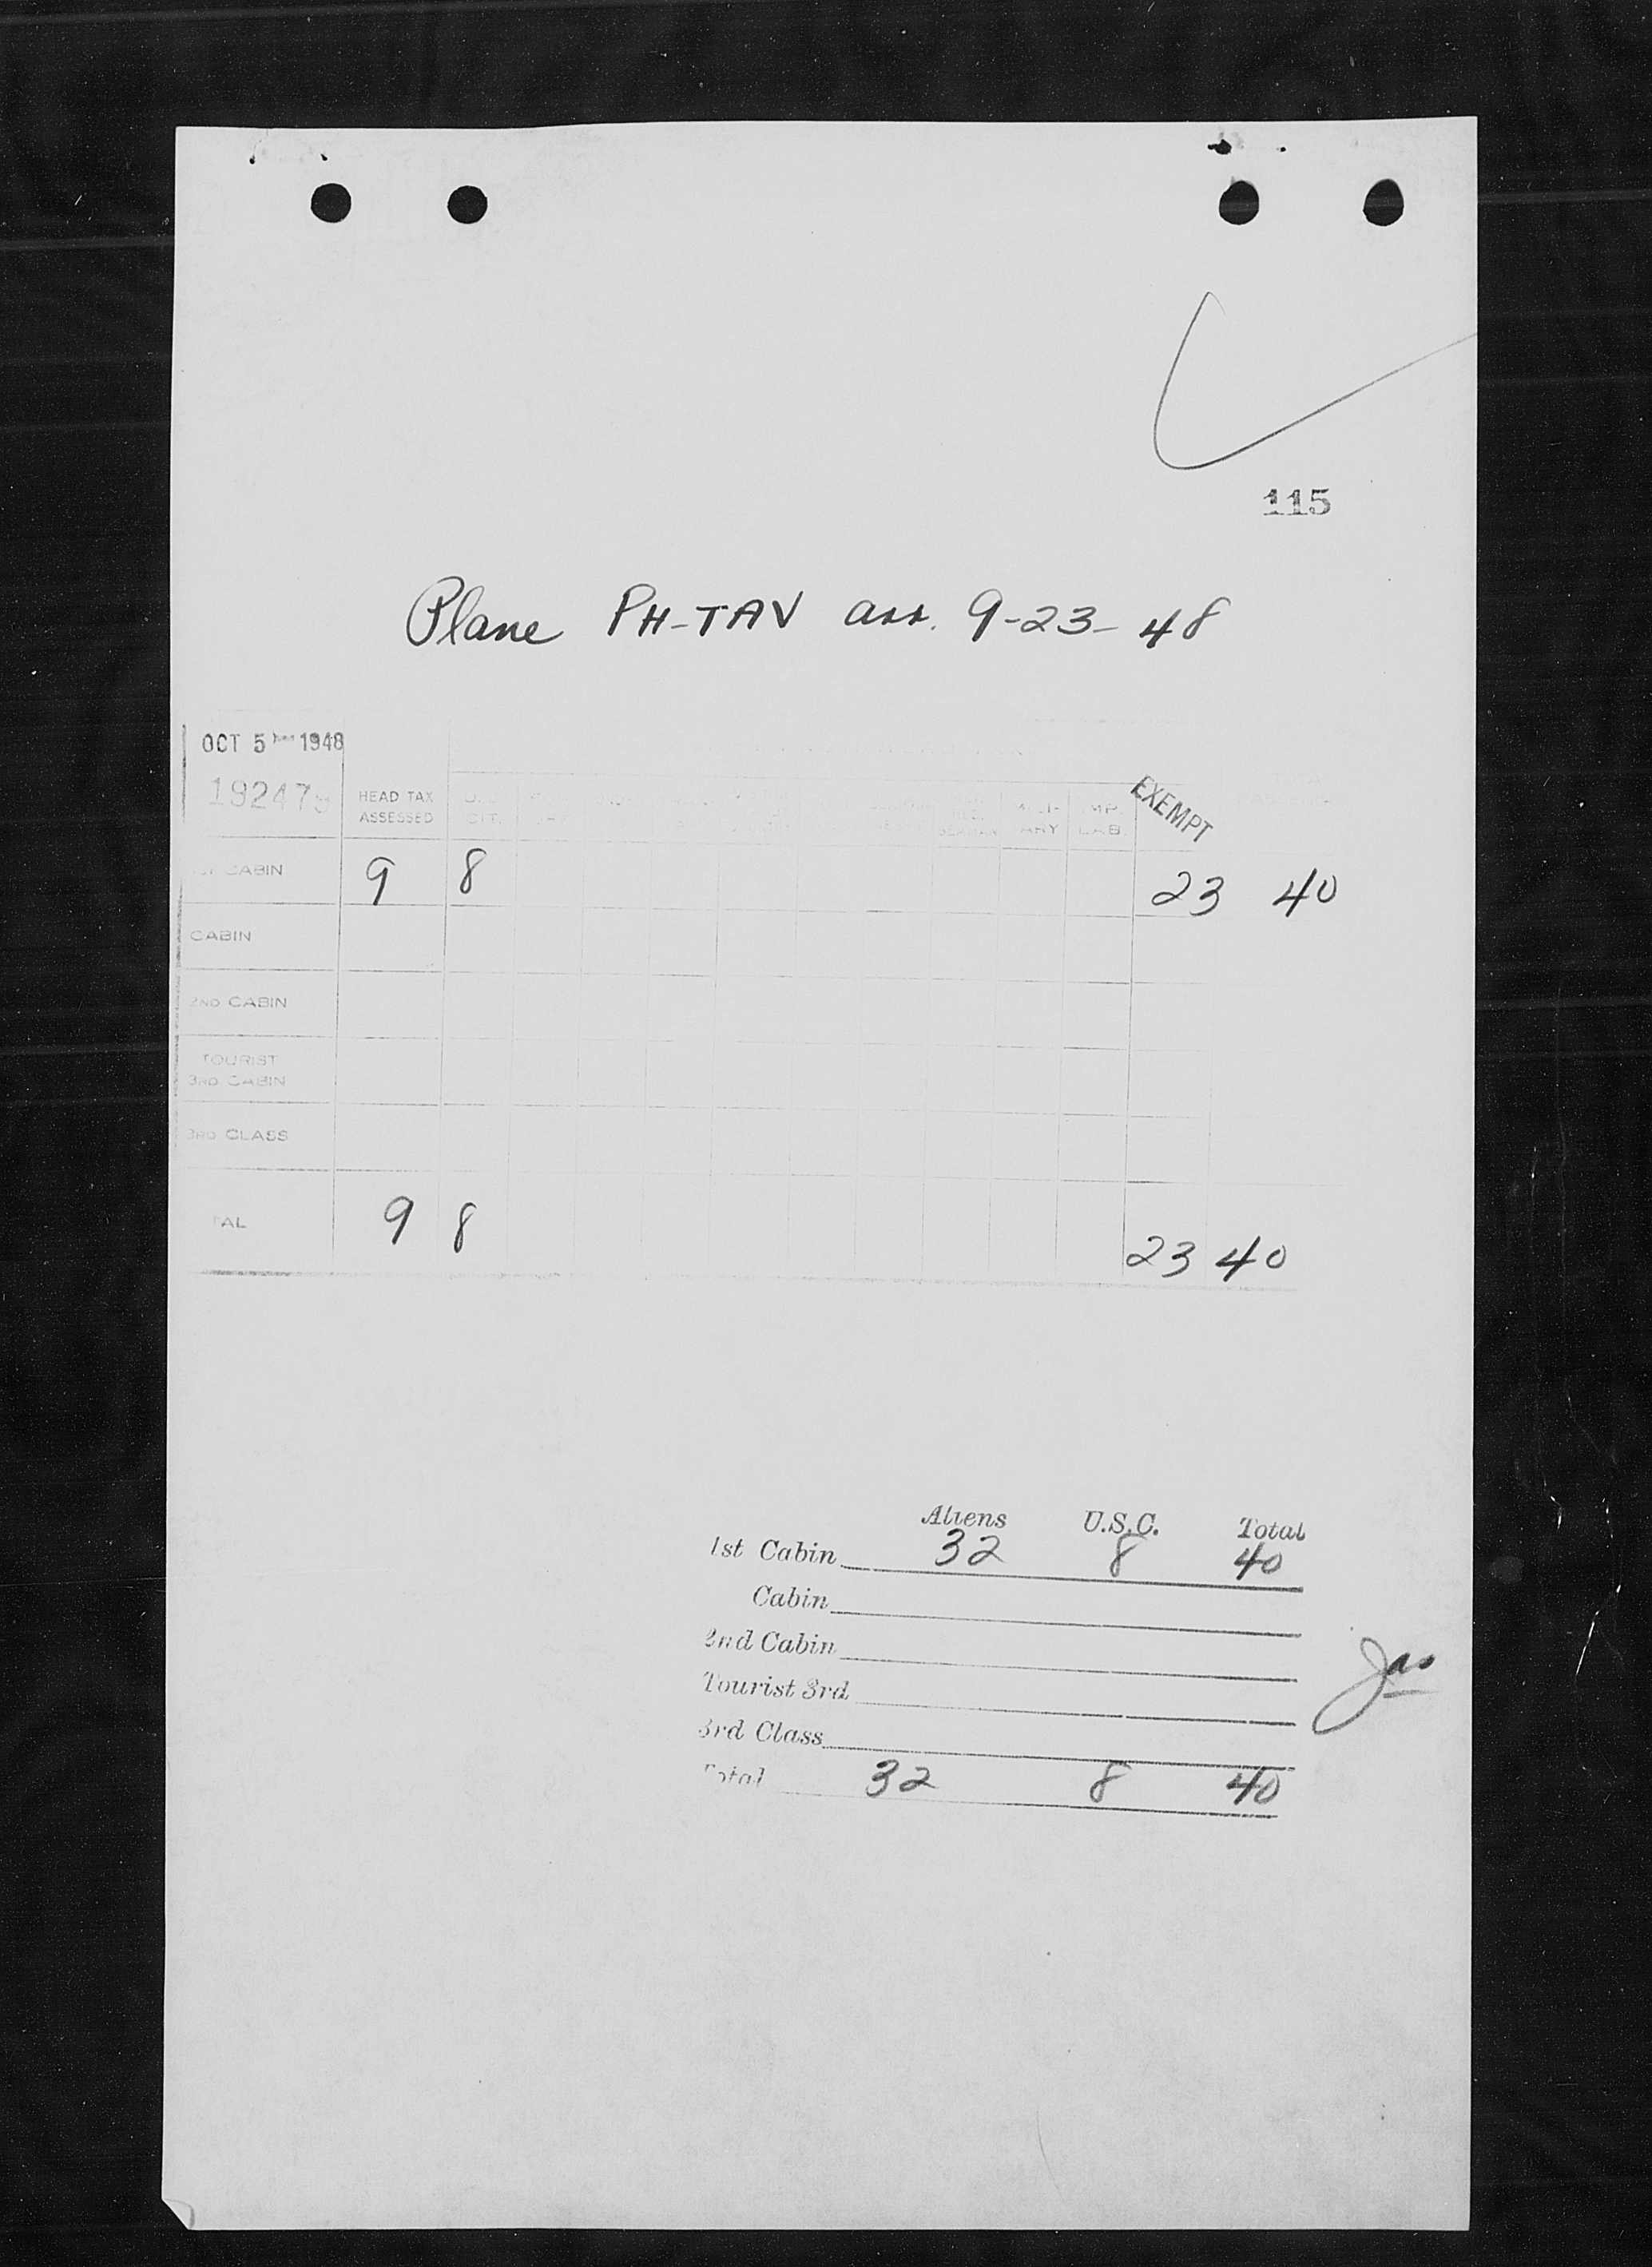 115
Plane PH-TAV arr. 9-23-48
OCT 5 1948
HEAD TAX
ASSESSED
CIT.
EXEMPT
CABIN 9 8 23 40
CABIN
2ND CABIN
TOURIST
3RD CABIN
3RD CLASS
TAL 9 8 23 40
Aliens U.S.C. Total
1st Cabin 32 8 40
Cabin
2nd Cabin
Tourist 3rd
3rd Class
Total 32 8 40
Jas